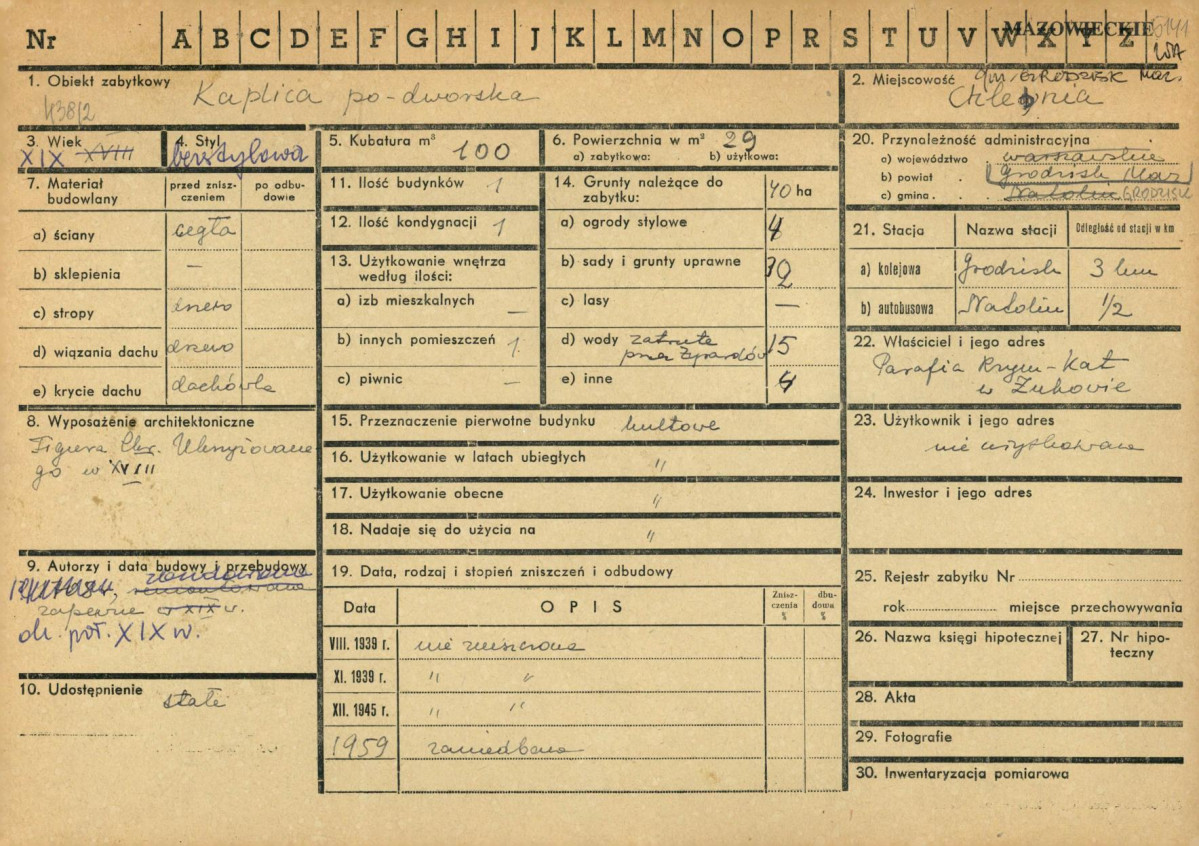 Nr A B C D E F G H I J K L M N O P R S T U V W X Y Z
MAZOWIECKIE
1. Obiekt zabytkowy Kaplica po-dworska
K38/2
2. Miejscowość gm. GRODZISK Maz.
Chlebnia
3. Wiek
XIX XVIII
4. Styl
bezstylowa
5. Kubatura m³ 100
6. Powierzchnia w m² 29
a) zabytkowa: b) użytkowa:
7. Materiał budowlany
przed zniszczeniem
po odbudowie
a) ściany cegła
b) sklepienia –
c) stropy drzewo
d) wiązania dachu drzewo
e) krycie dachu dachówka
8. Wyposażenie architektoniczne
Figura Chr. Ukrzyżowane
go w XVIII
9. Autorzy i data budowy i przebudowy
zapewne w XIX w.
ok. poł. XIX w.
10. Udostępnienie stałe
11. Ilość budynków 1
12. Ilość kondygnacji 1
13. Użytkowanie wnętrza
według ilości:
a) izb mieszkalnych –
b) innych pomieszczeń 1
c) piwnic –
14. Grunty należące do
zabytku: 40 ha
a) ogrody stylowe 4
b) sady i grunty uprawne 32
c) lasy –
d) wody zatrute
przez Żyrardów 15
e) inne 4
15. Przeznaczenie pierwotne budynku kultowe
16. Użytkowanie w latach ubiegłych "
17. Użytkowanie obecne "
18. Nadaje się do użycia na "
19. Data, rodzaj i stopień zniszczeń i odbudowy
Data OPIS Zniszczenia % dbudowa %
VIII. 1939 r. nie zniszczona
XI. 1939 r. " "
XII. 1945 r. " "
1959 zaniedbana
20. Przynależność administracyjna
a) województwo . warszawskie
b) powiat . Grodzisk Maz
c) gmina . . Natolin GRODZISK
21. Stacja Nazwa stacji Odległość od stacji w km
a) kolejowa Grodzisk 3 km
b) autobusowa Natolin 1/2
22. Właściciel i jego adres
Parafia Rzym-Kat
w Żukowie
23. Użytkownik i jego adres
nie użytkowana
24. Inwestor i jego adres
25. Rejestr zabytku Nr
rok miejsce przechowywania
26. Nazwa księgi hipotecznej
27. Nr hipoteczny
28. Akta
29. Fotografie
30. Inwentaryzacja pomiarowa